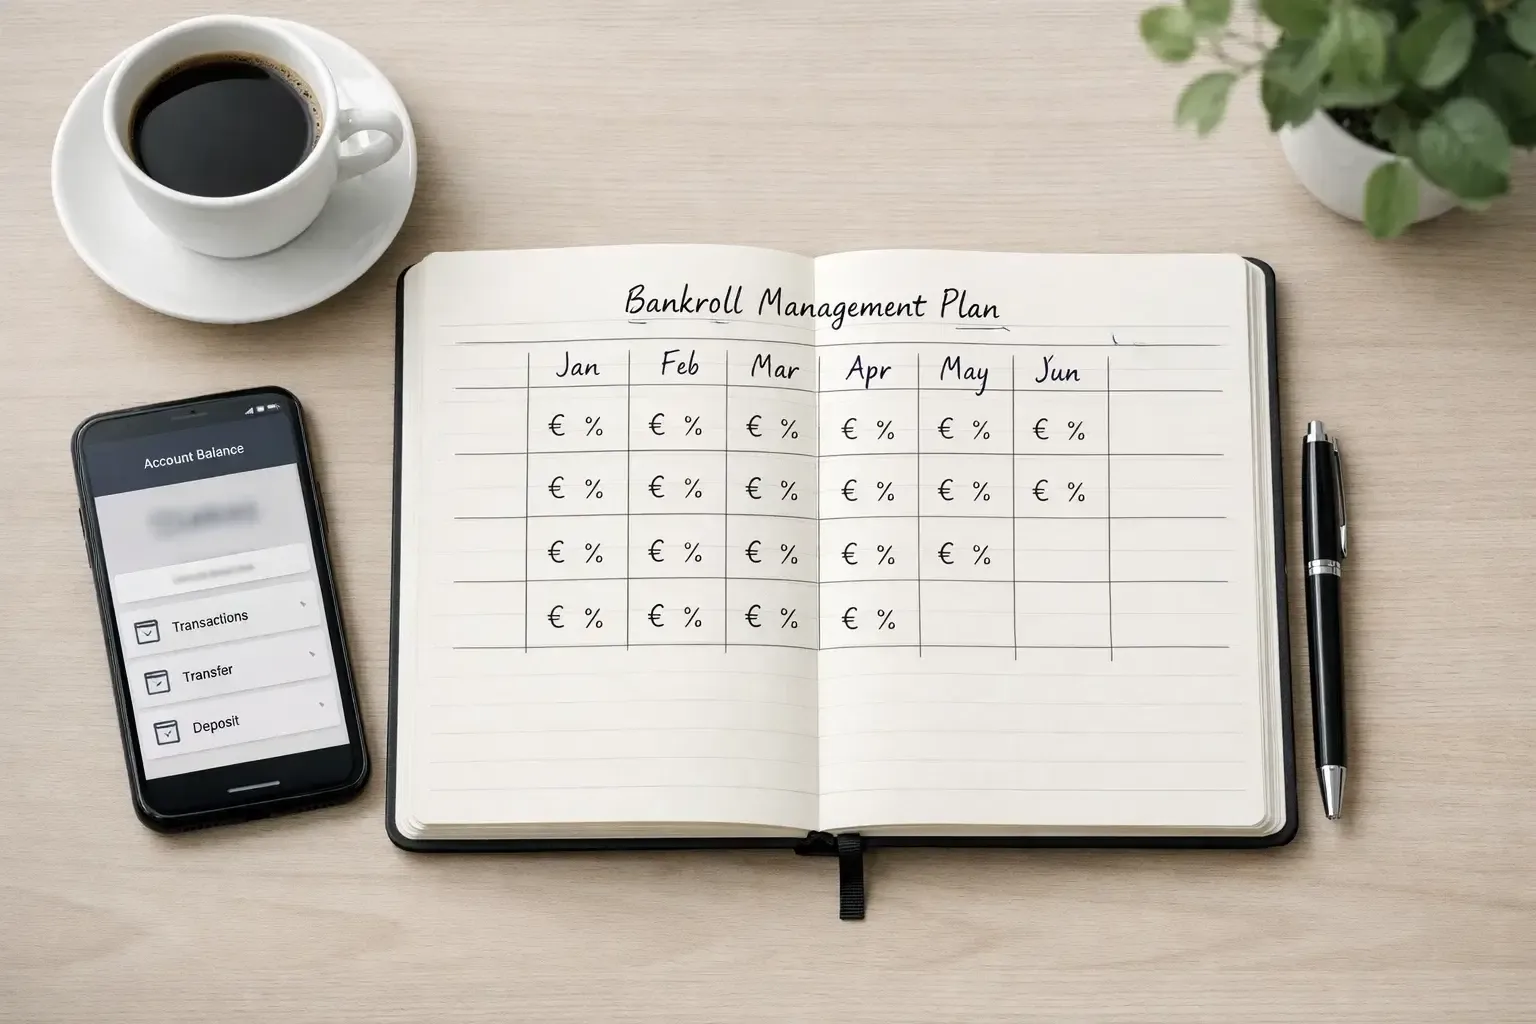 Bankroll Management Plan
Jan Feb Mar Apr May Jun
€ % € % € % € % € % € %
€ % € % € % € % € % € %
€ % € % € % € % € %
€ % € % € % € %
Account Balance
Transactions
Transfer
Deposit